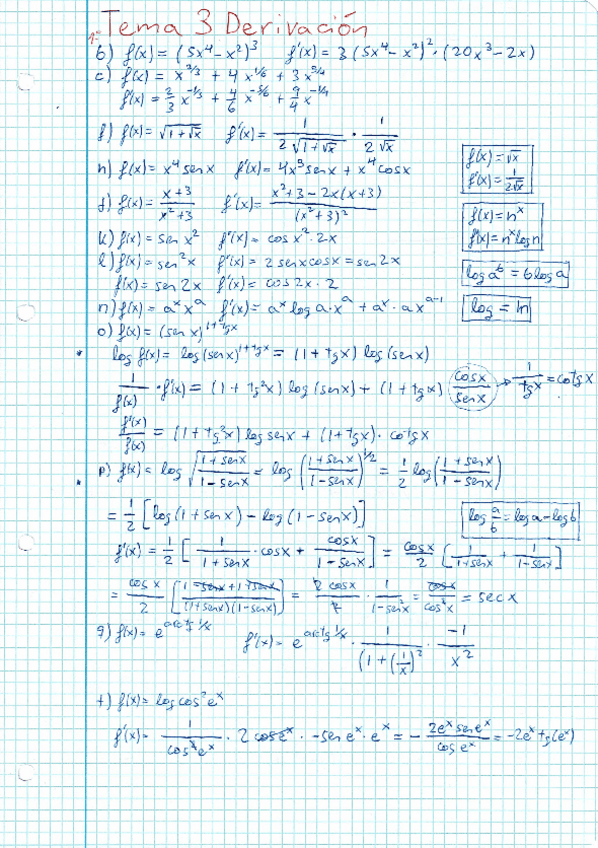 1.- Tema 3 Derivación
b) f(x) = (5x⁴ - x²)³ f'(x) = 3(5x⁴ - x²)² · (20x³ - 2x)
c) f(x) = x^{2/3} + 4x^{1/6} + 3x^{3/4}
f'(x) = 2/3 x^{-1/3} + 4/6 x^{-5/6} + 9/4 x^{-1/4}
f) f(x) = √(1+√x) f'(x) = 1/(2√(1+√x)) · 1/(2√x)
f(x) = √x
f'(x) = 1/(2√x)
h) f(x) = x⁴ sen x f'(x) = 4x³ sen x + x⁴ cos x
j) f(x) = (x+3)/(x²+3) f'(x) = (x²+3 - 2x(x+3))/(x²+3)²
f(x) = n^x
f'(x) = n^x log n
k) f(x) = sen x² f'(x) = cos x² · 2x
l) f(x) = sen²x f'(x) = 2 sen x cos x = sen 2x
log a^b = b log a
f(x) = sen 2x f'(x) = cos 2x · 2
n) f(x) = a^x x^a f'(x) = a^x log a · x^a + a^x · a x^{a-1}
log = ln
o) f(x) = (sen x)^{1+tg x}
log f(x) = log (sen x)^{1+tg x} = (1 + tg x) log (sen x)
1/f(x) · f'(x) = (1 + tg²x) log (sen x) + (1 + tg x) cos x/sen x → 1/tg x = cotg x
f'(x)/f(x) = (1 + tg²x) log sen x + (1 + tg x) · cotg x
p) f(x) = log √((1+sen x)/(1-sen x)) = log ((1+sen x)/(1-sen x))^{1/2} = 1/2 log ((1+sen x)/(1-sen x))
= 1/2 [log (1+sen x) - log (1-sen x)]
log a/b = log a - log b
f'(x) = 1/2 [1/(1+sen x) · cos x + cos x/(1-sen x)] = cos x/2 [1/(1+sen x) + 1/(1-sen x)]
= cos x/2 [(1-sen x + 1+sen x)/((1+sen x)(1-sen x))] = 2 cos x/2 · 1/(1-sen²x) = cos x/cos²x = sec x
q) f(x) = e^{arctg 1/x} f'(x) = e^{arctg 1/x} · 1/(1+(1/x)²) · -1/x²
t) f(x) = log cos² e^x
f'(x) = 1/(cos² e^x) · 2 cos e^x · -sen e^x · e^x = - 2e^x sen e^x/cos e^x = -2e^x tg(e^x)